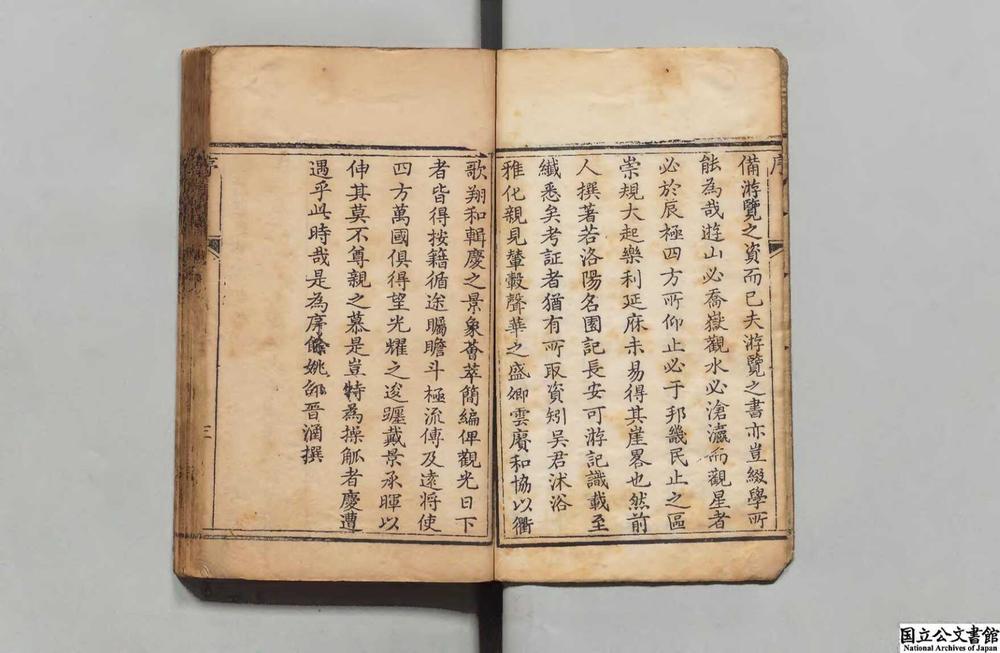 序
備游覽之資而已夫游覽之書亦豈綴學所
能為哉遊山必喬嶽觀水必滄瀛而觀星者
必於辰極四方所仰止必于邦畿民止之區
崇規大起樂利延庥未易得其崖畧也然前
人撰著若洛陽名園記長安可游記識載至
纖悉矣考証者猶有所取資矧吳君沭浴
雅化親見輦轂聲華之盛卿雲賡和協以衢
歌翔和輯慶之景象薈萃簡編俾觀光日下
者皆得按籍循途矚瞻斗極流傳及遠將使
四方萬國俱得望光耀之逡躔戴景承暉以
伸其莫不尊親之慕是豈特為操觚者慶遭
遇乎此時哉是為序餘姚邵晋涵撰
序
三
国立公文書館
National Archives of Japan